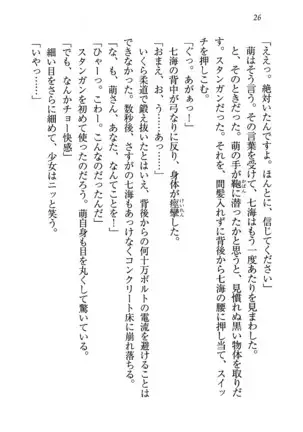 26
「ええ。絶対いたんですよ。ほんとに、信じてください」
　萌はそう言う。その言葉を受けて、七海はもう一度あたりを見まわした。
と、そのときだった。萌の手が鞄に潜ったかと思うと、見慣れぬ黒い物体を取りだ
す。スタンガンだった。それを、間髪入れずに背後から七海の腰に押し当て、スイッ
チを押しこむ。
「ぐっ。あがぁっ……」
　七海の背中が弓なりに反り、身体が痙攣した。
「おまえ、お、う……あっ……」
　いくら柔道で鍛え抜いたとはいえ、背後からの何十万ボルトの電流を避けることは
できなかった。数秒後、さすがの七海もあっけなくコンクリート床に崩れ落ちる。
「も、萌さん、あなた、なんてことを……」
「ひゃーっ。こわー。こんなのだったんだ」
　スタンガンを初めて使ったのだろう。萌自身も目を丸くして驚いている。
「でも、なんかチョー快感」
　細い目をさらに細めて、少女はニッと笑う。
「いやっ……」